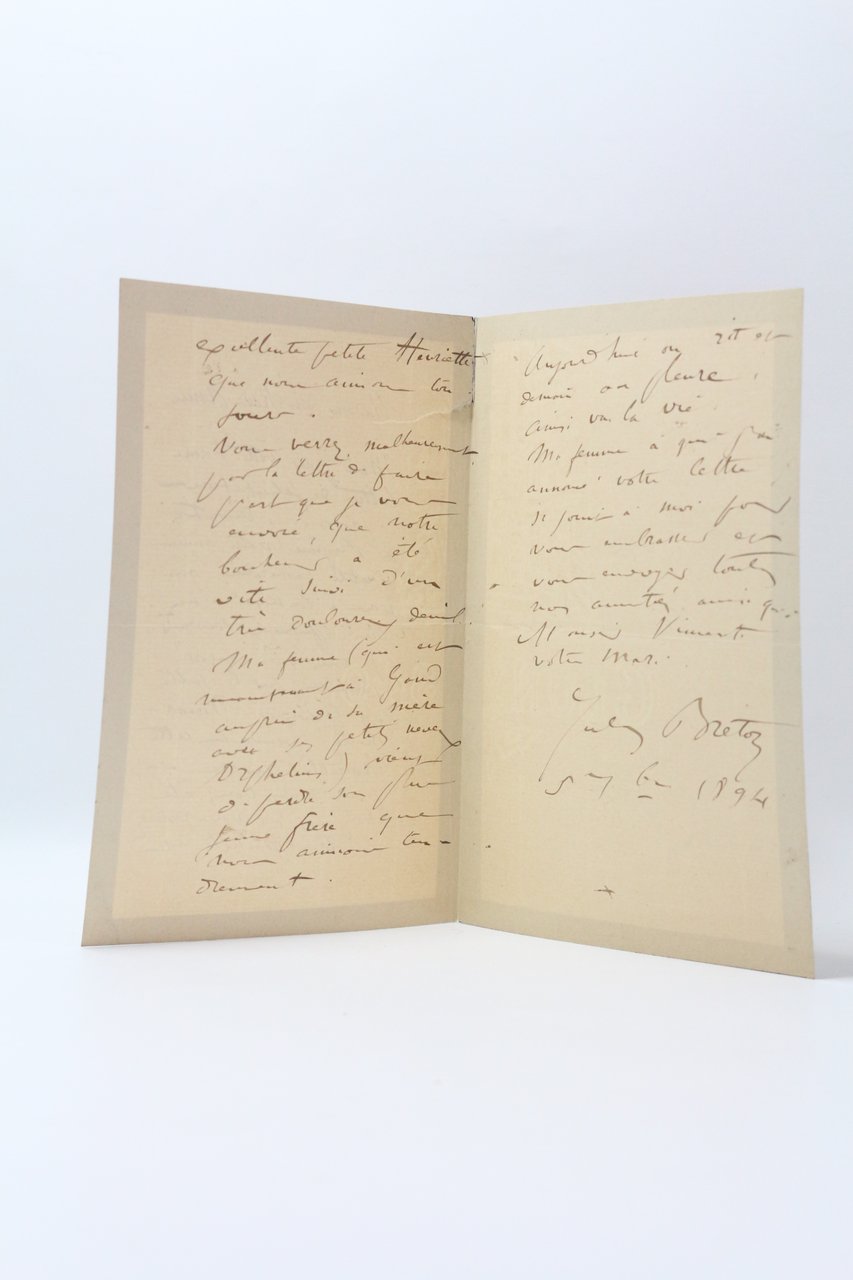 excellente petite Henriette
que nous aimons tou
jours.
Vous verrez, malheureusement
par la lettre de faire
part que je vous
envoie, que notre
bonheur a été
vite suivi d'un
très douloureux deuil.
Ma femme (qui est
maintenant à Gand
auprès de sa mère
avec ses petits neveux
Orphelins) vient
de perdre son plus
jeune frère que
nous aimions ten-
drement.
Aujourd'hui on rit et
demain on pleure.
ainsi va la vie.
Ma femme à qui j'ai
annoncé votre lettre
se joint à moi pour
vous embrasser et
vous envoyer toutes
nos amitiés ainsi qu'à
Monsieur Vincent
votre Mari.
Jules Breton
5 1894